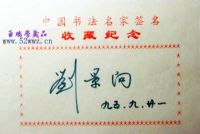 玉琦摩藏品
www.52wwz.cn
中国书法名家签名
收藏纪念
劉景向
九五.九.廿一